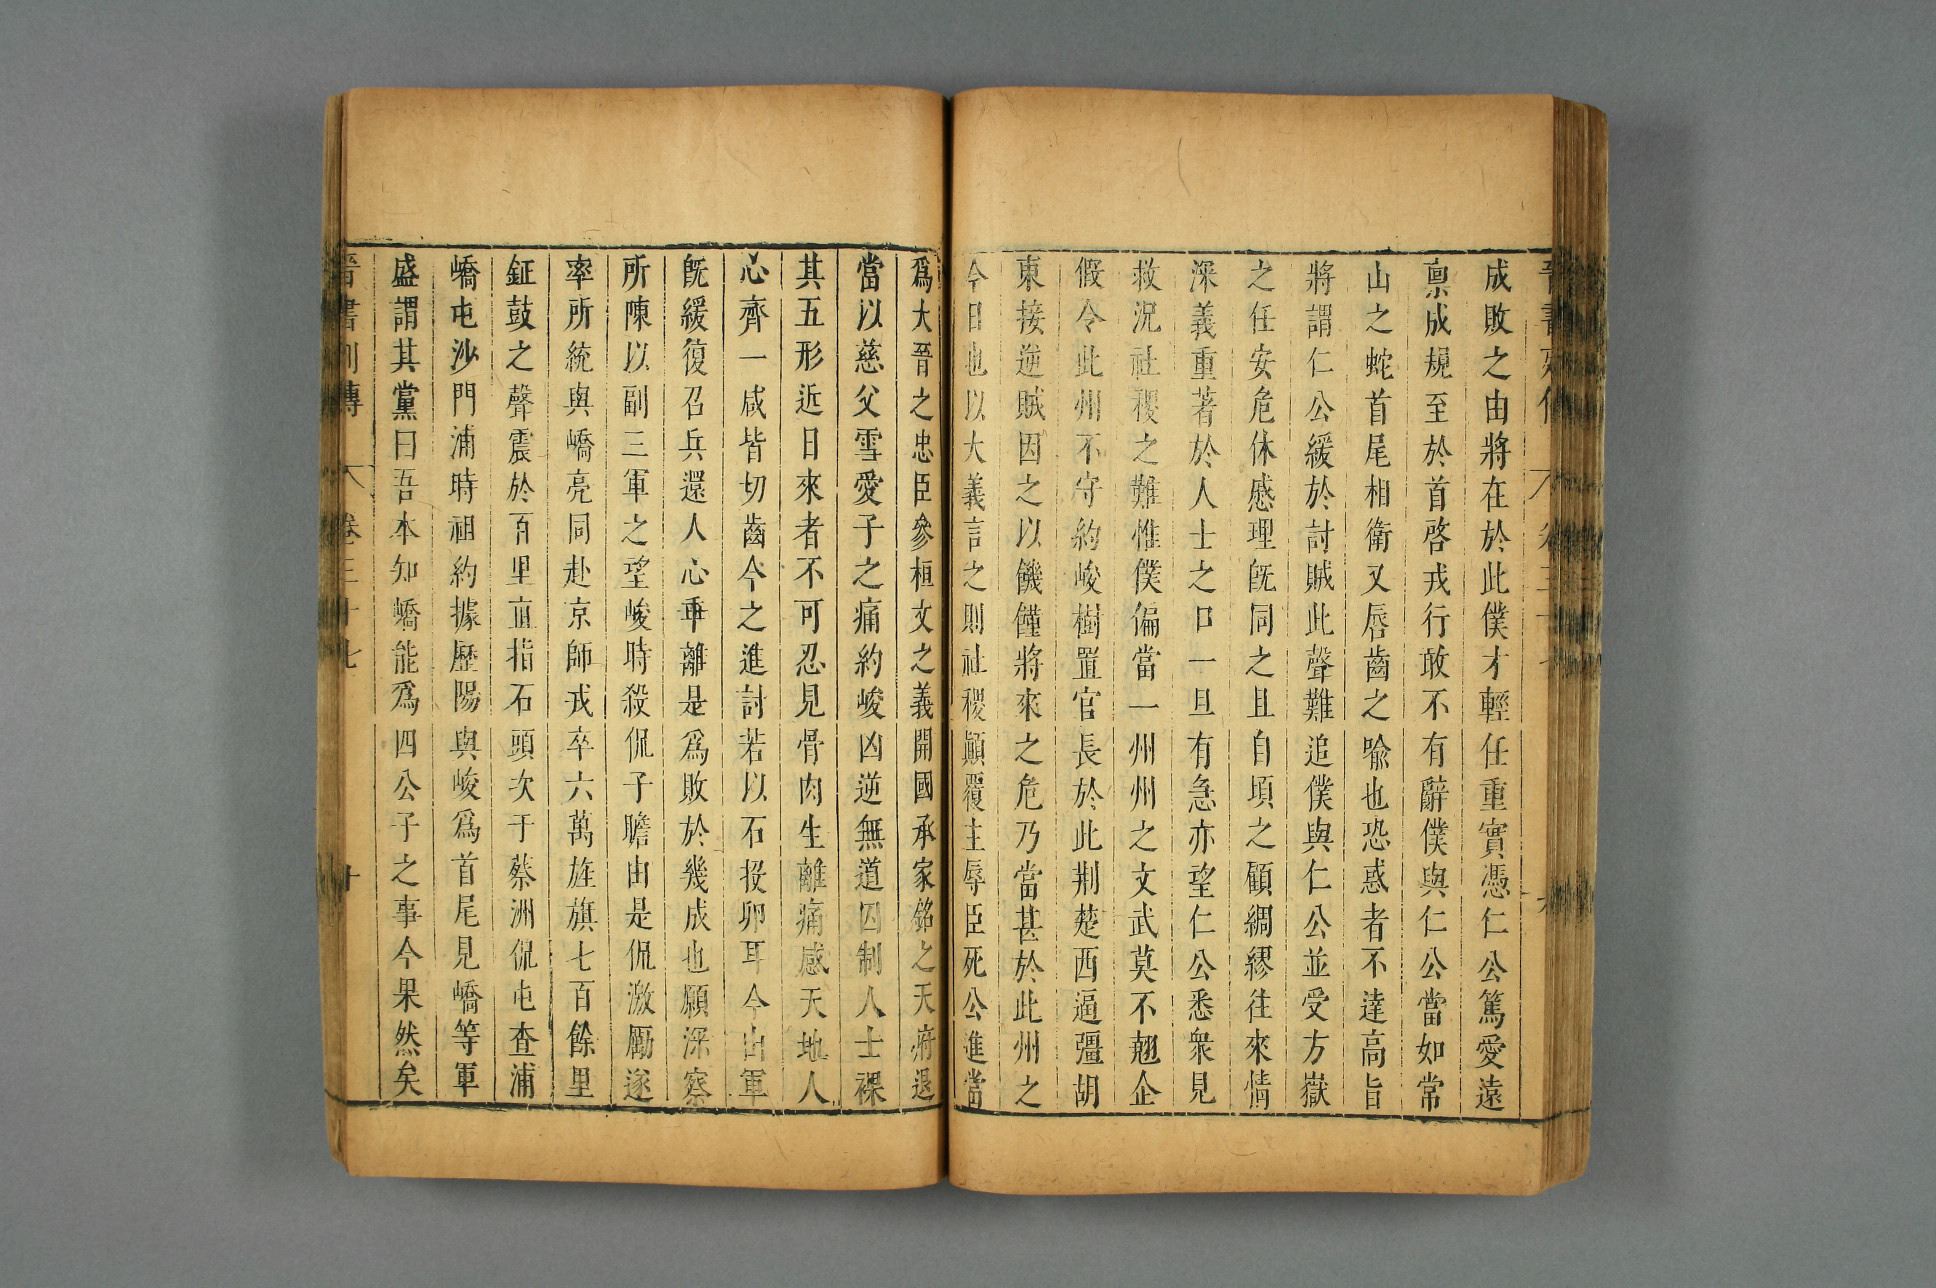 成敗之由將在於此僕才輕任重實憑仁公篤愛遠
禀成規至於首啓戎行敢不有辭僕與仁公當如常
山之蛇首尾相衛又唇齒之喻也恐惑者不達高旨
將謂仁公緩於討賊此聲難追僕與仁公並受方嶽
之任安危休慼理旣同之且自頃之顧綢繆往來情
深義重著於人士之口一旦有急亦望仁公悉衆見
救況社稷之難惟僕偏當一州州之文武莫不翹企
假令此州不守約峻樹置官長於此荆楚西逼彊胡
東接逆賊因之以饑饉將來之危乃當甚於此州之
今日也以大義言之則社稷顚覆主辱臣死公進當
爲大晉之忠臣參桓文之義開國承家銘之天府退
當以慈父雪愛子之痛約峻凶逆無道囚制人士裸
其五形近日來者不可忍見骨肉生離痛感天地人
心齊一咸皆切齒今之進討若以石投卵耳今出軍
旣緩復召兵還人心乖離是爲敗於幾成也願深察
所陳以副三軍之望峻時殺侃子瞻由是侃激勵遂
率所統與嶠亮同赴京師戎卒六萬旌旗七百餘里
鉦鼓之聲震於百里直指石頭次于蔡洲侃屯查浦
嶠屯沙門浦時祖約據歷陽與峻爲首尾見嶠等軍
盛謂其黨曰吾本知嶠能爲四公子之事今果然矣
晉書列傳 卷三十七 十